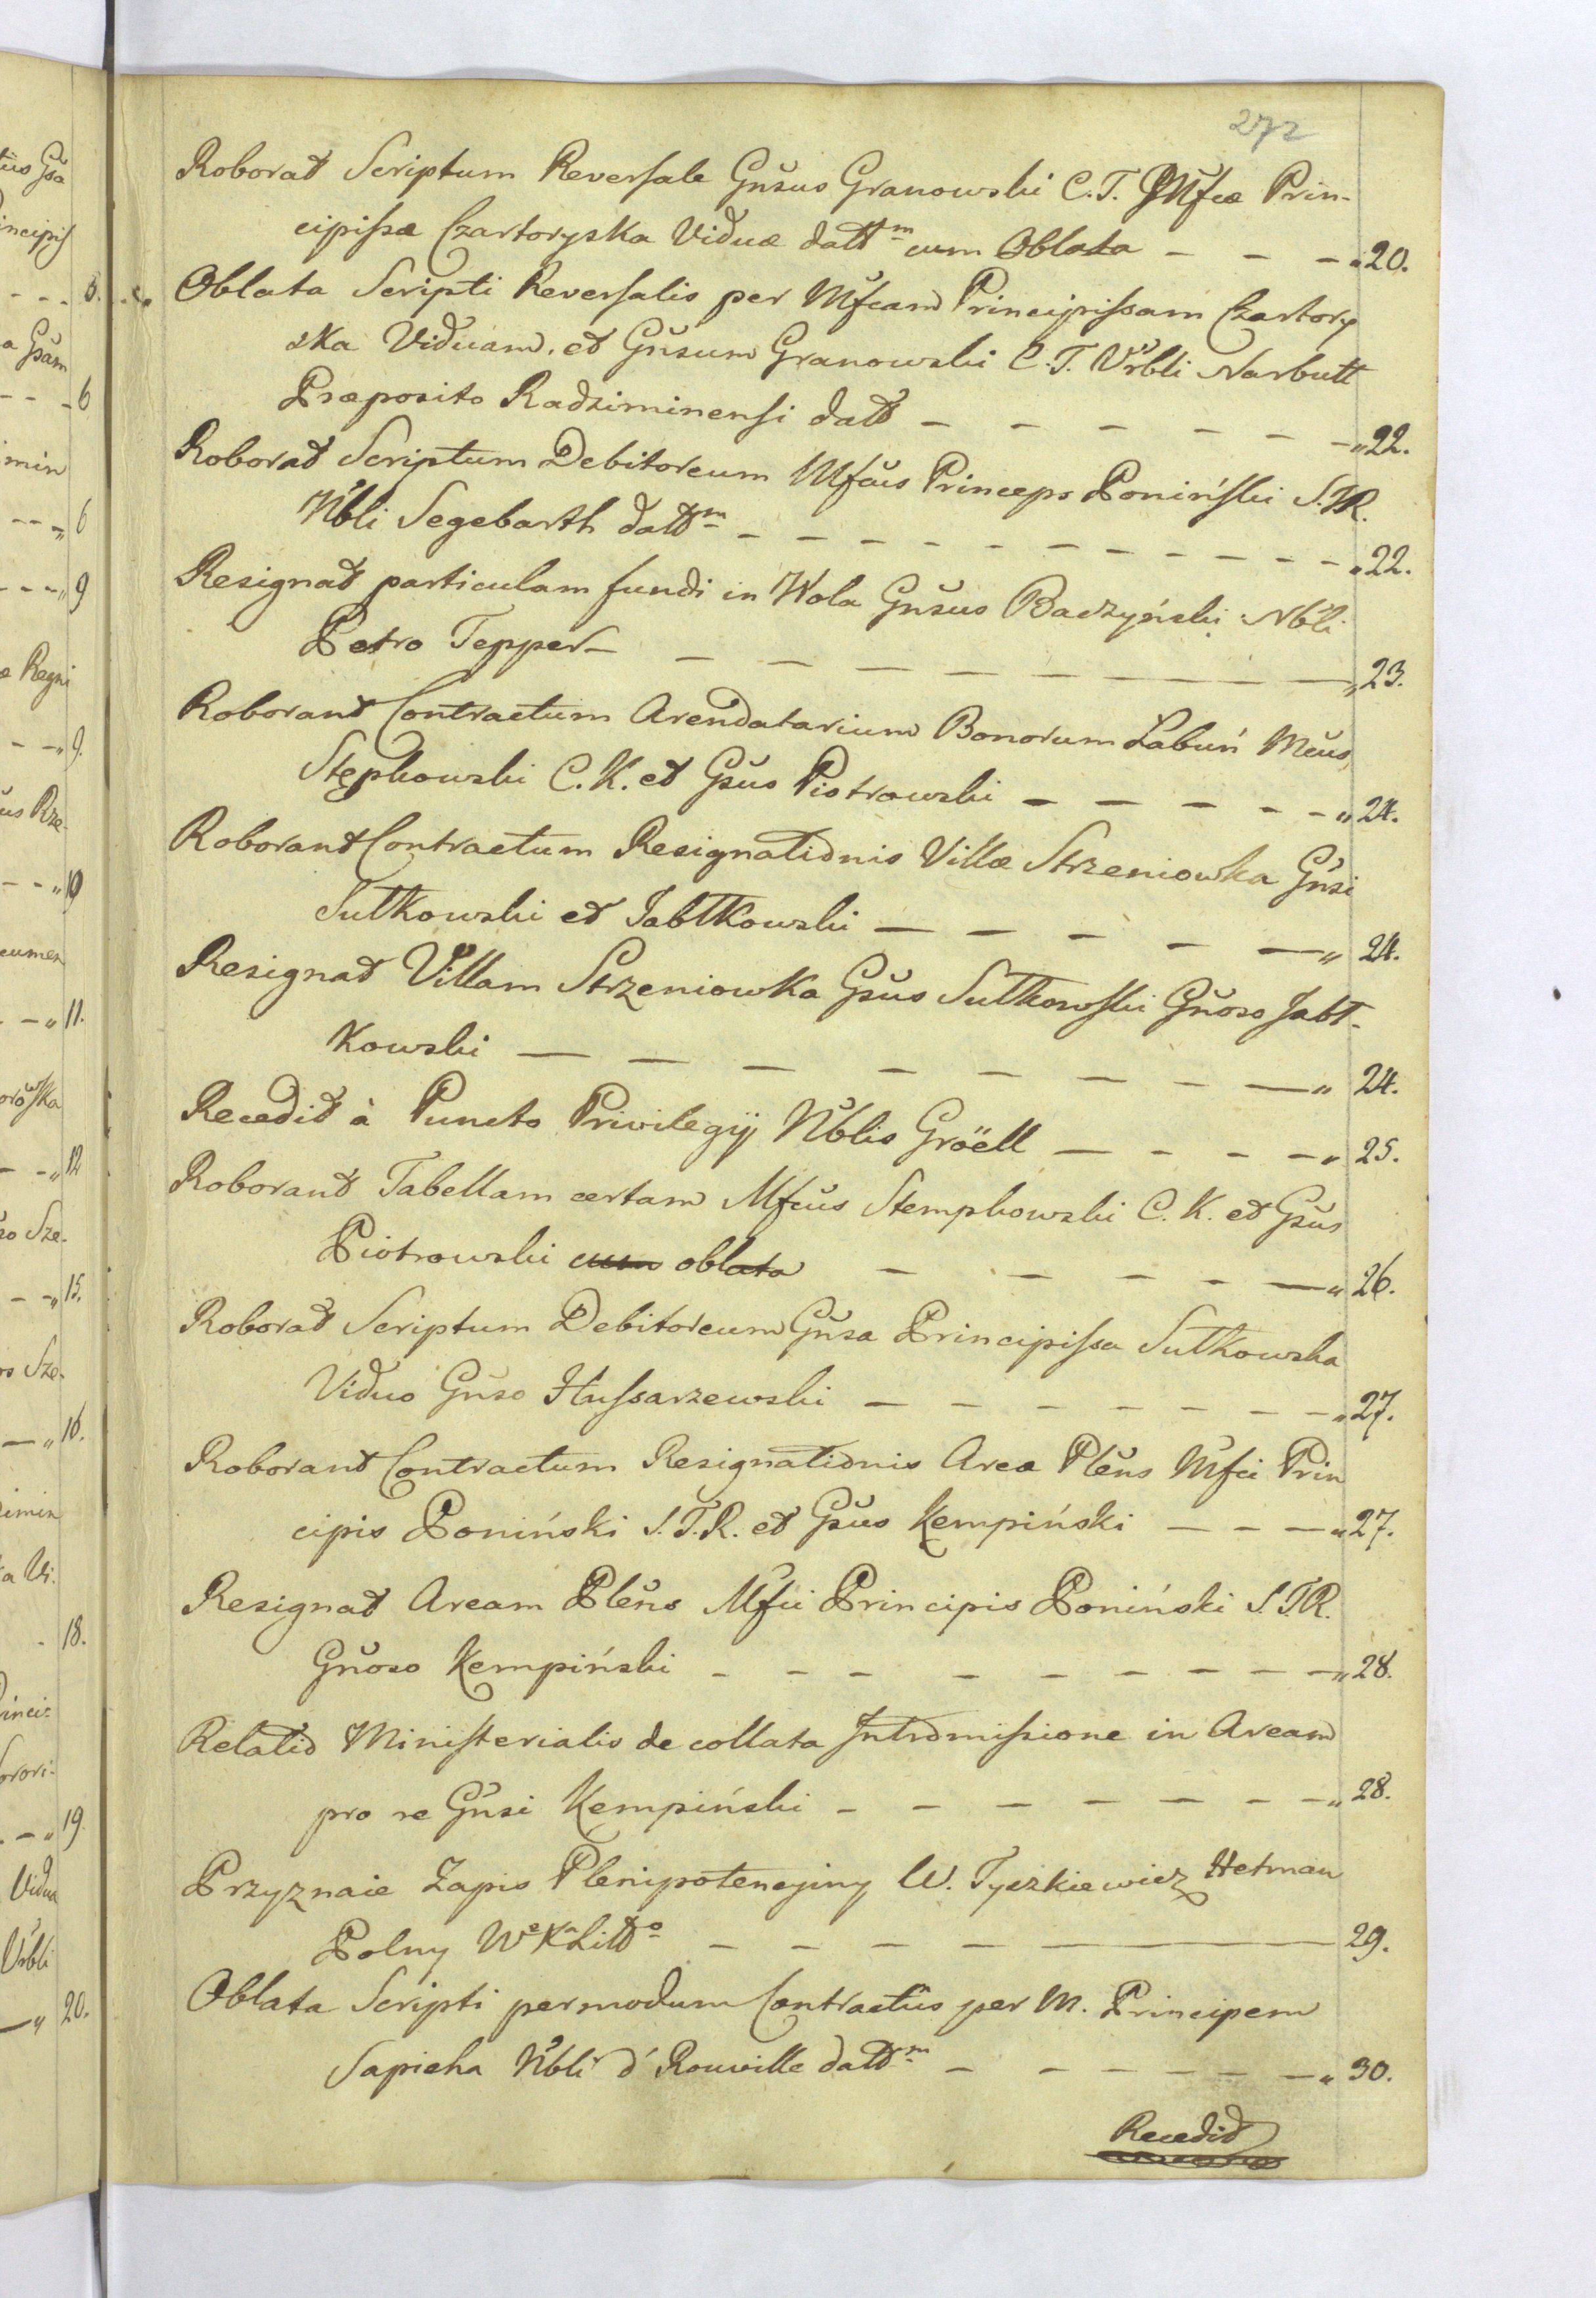 272
Roborat Scriptum Reversale Gnšus Granowski C. T. Mfcæ Prin-
cipissæ Czartoryska Viduæ datt͞m cum Oblata - - - „ 20.
Oblata Scripti Reversalis per Mfcam Principissam Czartory
ska Viduam, et Gnšum Granowski C. T. Vrbli Narbutt
Præposito Radziminensi datt - - - - - - „ 22.
Roborat Scriptum Debitoreum Mfcus Princeps Poniński S. T. R.
Nbli Segebarth datt͞m - - - - - - - - - - „ 22.
Resignat particulam fundi in Wola Gnšus Badzyński Nbli
Petro Tepper - - - - - - - „ 23.
Roborant Contractum Arendatarium Bonorum Łabuń Mcus
Stępkowski C. K. et Gšus Piotrowski - - - - - „ 24.
Roborant Contractum Resignationis Villæ Strzeniowka Gnši
Sułkowski et Jabłkowski - - - - - „ 24.
Resignat Villam Strzeniowka Gšus Sułkowski Gnoso Jabł-
kowski - - - - - - - - „ 24.
Recedit à Puncto Privilegij Nblis Gröell - - - - „ 25.
Roborant Tabellam certam Mfcus Stempkowski C. K. et Gšus
Piotrowski cum oblata - - - - - „ 26.
Roborat Scriptum Debitoreum Gnša Principissa Sułkowska
Vidua Gnšo Hussarzewski - - - - - - - „ 27.
Roborant Contractum Resignationis Areæ Plens Mfci Prin
cipis Poniński S. T. R. et Gšus Kempiński - - - „ 27.
Resignat Aream Plens Mfci Principis Poniński S. T. R.
Gnoso Kempiński - - - - - - - - - „ 28.
Relatio Ministerialis de collata Intromissione in Aream
pro re Gnši Kempiński - - - - - - - „ 28.
Przyznaie Zapis Plenipotencyiny W. Tyszkiewicz Hetman
Polny We Ka Litto - - - - - 29.
Oblata Scripti per modum Contractûs per M. Principem
Sapieha Nbli d' Rouville datt͞m - - - - - - „ 30.
Recedit